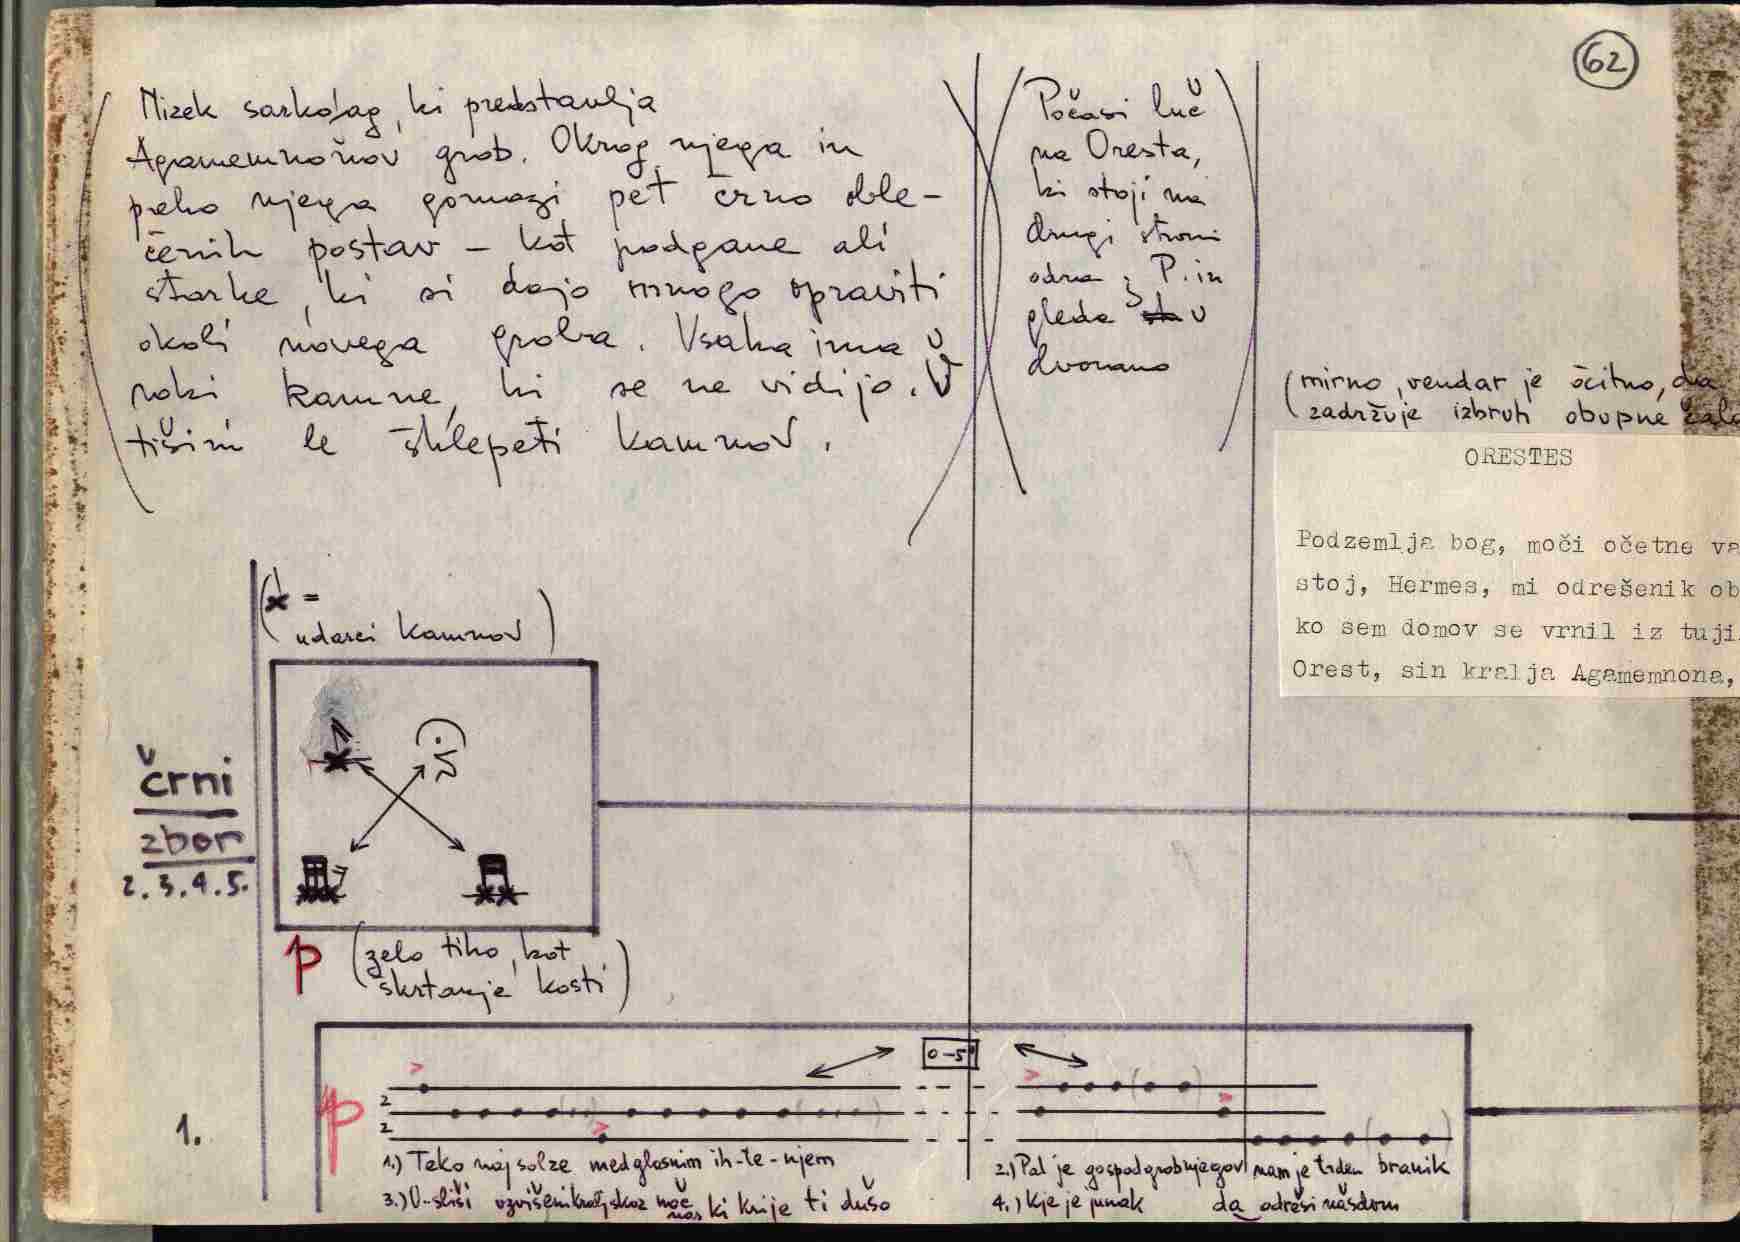 62
Nizek sarkofag, ki predstavlja
Agamemnonov grob. Okrog njega in
preko njega gomazi pet črno oble-
čenih postav – kot podgane ali
starke, ki si dajo mnogo opraviti
okoli novega groba. Vsaka ima v
roki kamne, ki se ne vidijo. V
tišini le šklepeti kamnov.
Počasi luč
na Oresta,
ki stoji na
drugi strani
odra z P. in
gleda v
dvorano
(mirno, vendar je očitno, da
zadržuje izbruh obupne
ORESTES
Podzemlja bog, moči očetne va
stoj, Hermes, mi odrešenik ob
ko sem domov se vrnil iz tuji
Orest, sin kralja Agamemnona,
(x =
udarci kamnov)
črni
zbor
2. 3. 4. 5.
p (zelo tiho, kot
škrtanje kosti)
0-5"
p
2
2
1.
1.) Teko naj solze med glasnim ih-te-njem
2.) Pal je gospod grob njegov nam je trden branik
3.) U-sliši vzvišeni kralj skoz noč
nas ki krije ti dušo
4.) Kje je junak da odreši naš dom